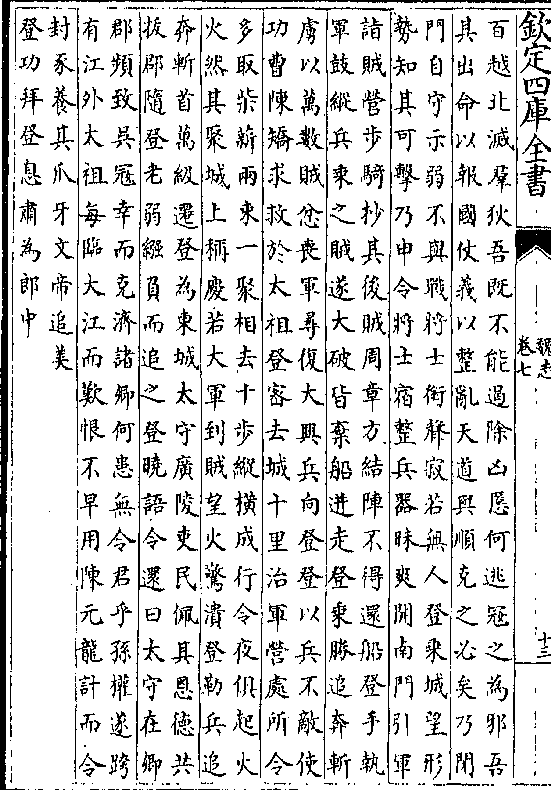 欽定四庫全書
魏志
卷七
十三
百越北滅羣狄吾既不能遏除凶慝何逃冦之為邪吾
其出命以報國仗義以整亂天道與順克之必矣乃閉
門自守示弱不與戰將士銜聲寂若無人登乘城望形
勢知其可擊乃申令將士宿整兵器昧爽開南門引軍
詣賊營步騎抄其後賊周章方結陣不得還船登手執
軍鼓縱兵乘之賊遂大破皆棄船迸走登乘勝追奔斬
虜以萬數賊忿喪軍尋復大興兵向登登以兵不敵使
功曹陳矯求救於太祖登密去城十里治軍營處所令
多取柴薪兩束一聚相去十步縱横成行令夜俱起火
火然其聚城上稱慶若大軍到賊望火驚潰登勒兵追
奔斬首萬級遷登為東城太守廣陵吏民佩其恩德共
拔郡隨登老弱繈負而追之登曉語令還曰太守在卿
郡頻致吳冦幸而克濟諸卿何患無令君乎孫權遂跨
有江外太祖每臨大江而歎恨不早用陳元龍計而令
封豕養其爪牙文帝追美
登功拜登息肅為郎中